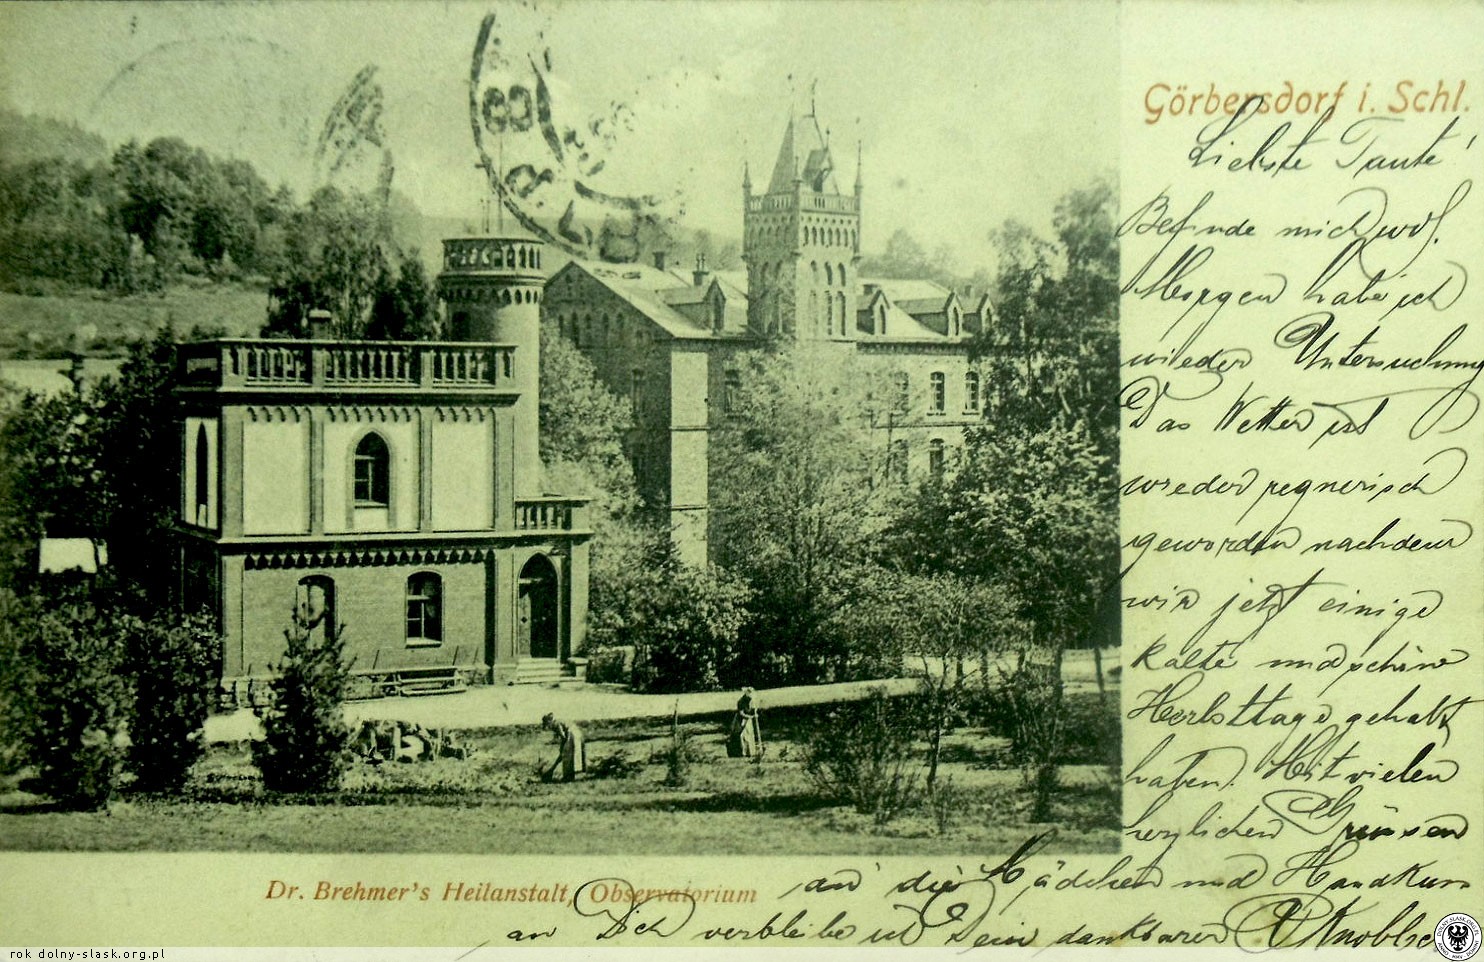 Görbersdorf i. Schl.
Liebste Tante!
Befinde mich wol.
Morgen habe ich
wieder Untersuchung
Das Wetter ist
wieder regnerisch
geworden nachdem
wir jetzt einige
kalte und schöne
Herbsttage gehabt
haben. Mit vielen
herzlichen Grüssen
Dr. Brehmer's Heilanstalt, Observatorium
an die Mädchen und Handkuss
an Dich verbleibe ich Dein dankbarer
rok dolny-slask.org.pl